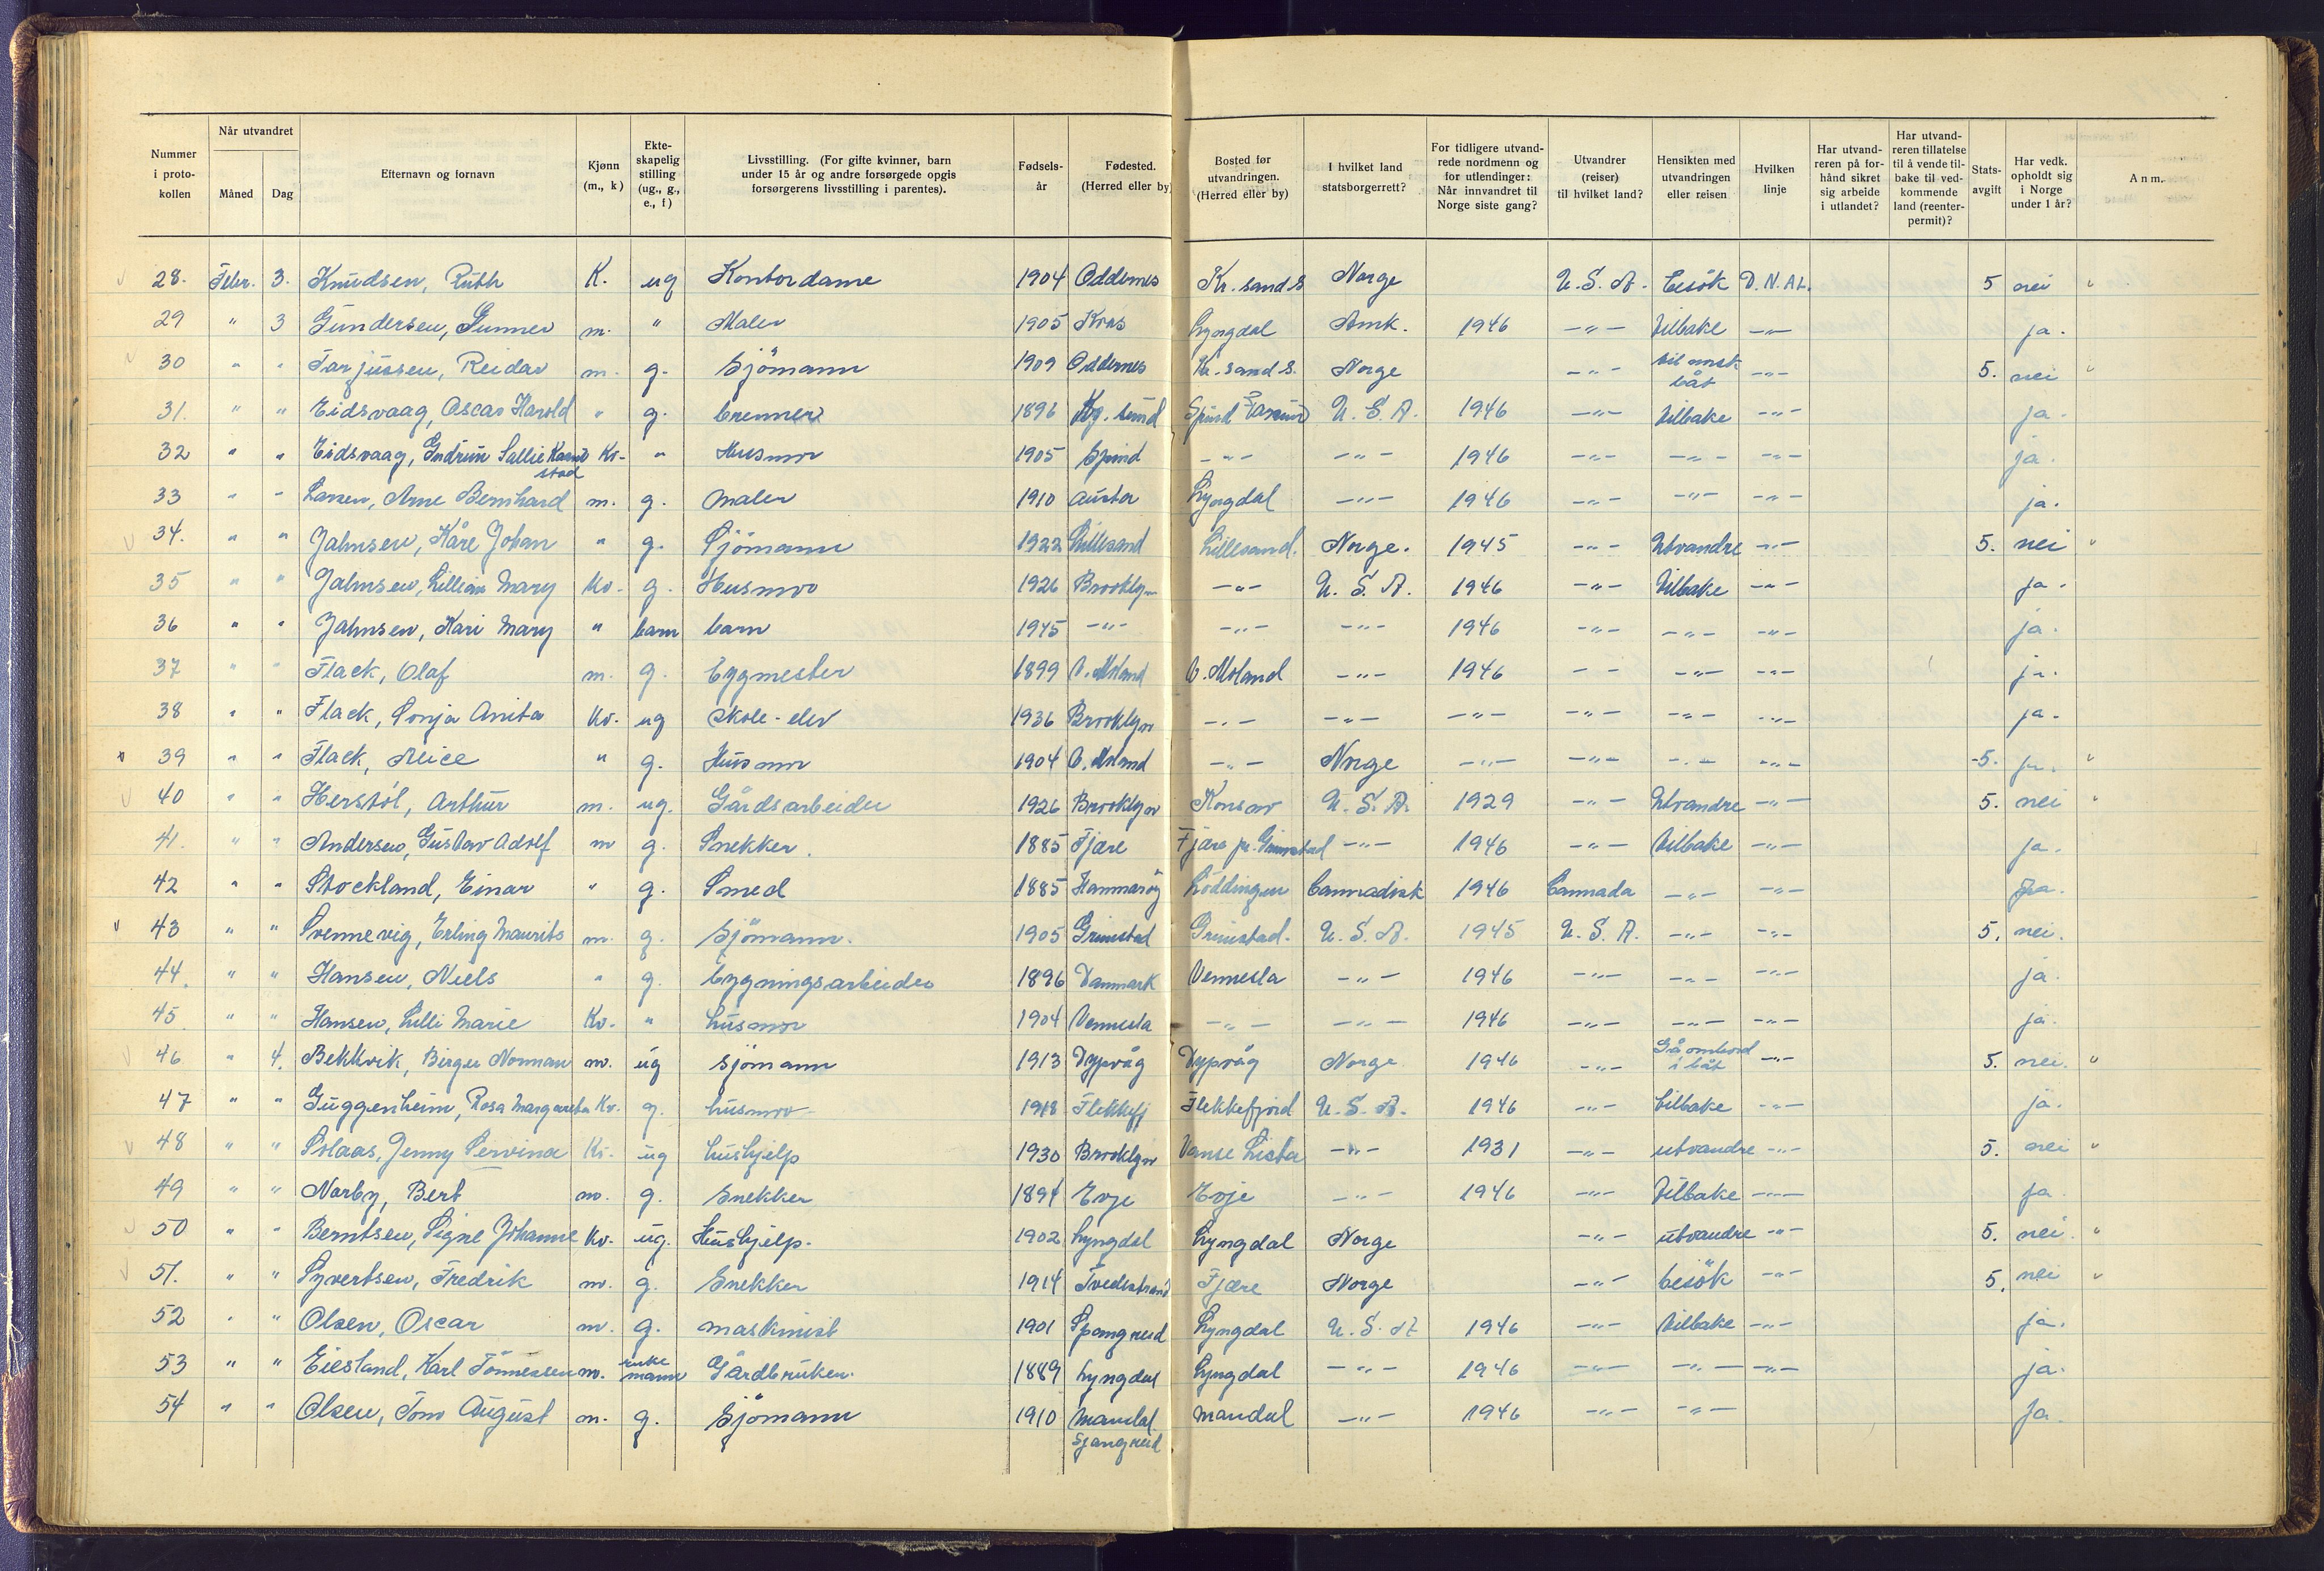 Nummer i proto- kollen | Når utvandret | Måned | Dag | Efternavn og fornavn | Kjønn (m., k) | Ekte- skapelig stilling (ug., g., e., f) | Livsstilling. (For gifte kvinner, barn under 15 år og andre forsørgede opgis forsørgerens livsstilling i parentes). | Fødsels- år | Fødested. (Herred eller by) | Bosted før utvandringen. (Herred eller by) | I hvilket land statsborgerrett? | For tidligere utvand- rede nordmenn og for utlendinger: Når innvandret til Norge siste gang? | Utvandrer (reiser) til hvilket land? | Hensikten med utvandringen eller reisen | Hvilken linje | Har utvand- reren på for- hånd sikret sig arbeide i utlandet? | Har utvand- reren tillatelse til å vende til- bake til ved- kommende land (reenter- permit)? | Stats- avgift | Har vedk. opholdt sig i Norge under 1 år? | Anm.
28. Febr. 3. Knudsen, Ruth K. ug Kontordame 1904 Oddernes Kr.sand.S Norge U.S.A. besök D.N.A.L. 5 nei "
29 " 3 Gundersen, Gunner m. " Maler 1905 Kvås Lyngdal Amk. 1946 -"- tilbake -"- ja.
30 " " Tarjussen, Reidar m. g. Sjömann 1909 Oddernes Kr.sand S. Norge -"- til norsk båt -"- 5. nei "
31. " " Eidsvaag, Oscar Harold " g. brenner 1896 sund Spind Farsund U.S.A. 1946 -"- tilbake -"- ja.
32 " " Eidsvaag, Gudrun Sallie stad Kv- " Husmor 1905 Spind -"- -"- 1946 -"- -"- -"- ja.
33 " " Larsen, Arne Bernhard m. g. maler 1910 Austa Lyngdal -"- 1946 -"- -"- -"- ja.
34. " " Jahnsen, Kåre Johan " g. Sjömann 1922 Lillesand Lillesand. Norge. 1945 -"- Utvandre -"- 5. nei "
35 " " Jahnsen, Lillian Mary Kv- g. Husmor 1926 Brooklyn -"- U.S.A. 1946 -"- tilbake -"- ja.
36 " " Jahnsen, Kari Mary " barn barn 1945 -"- -"- -"- 1946 -"- -"- -"- ja.
37 " " Flack, Olaf m. g. byggmester 1899 Ø. Moland Ø. Moland -"- 1946 - - -"- -"- ja.
38 " " Flack, Sonja Anita Kv- ug skole-elev 1936 Brooklyn -"- -"- -"- -"- -"- -"- ja.
39 " " Flack, Alice " g. Husmor 1904 Ø. Moland -"- Norge -"- -"- -"- -"- 5. ja. "
40 " " Herstöl, Arthur m. ug. Gårdsarbeider 1926 Brooklyn U.S.A. 1929 -"- Utvandre -"- 5. nei "
41. " " Andersen, Gustav Adolf m g. Snekker. 1885 Fjære Fjære pr. Grimstad -"- 1946 -"- tilbake -"- ja.
42 " " Stockland, Einar " g. Smed 1885 Hammarøy Löddingen Cannadisk 1946 Cannada -"- -"- ja.
43 " " Svennevig, Erling Maurits m. g. Sjömann. 1905 Grimstad Grimstad. U.S.A. 1945 U.S.A. -"- -"- 5. nei.
44. " " Hansen, Niels " g. bygningsarbeider 1896 Danmark Vennesla -"- 1946 -"- -"- -"- ja.
45 " " Hansen, Lilli Marie Kv. " husmor 1904 Vennesla -"- -"- 1946 -"- -"- -"- ja.
46 " 4. Bekkvik, Birger Norman m. ug sjömann 1913 Dypvåg Dypvåg Norge 1946 -"- Gå ombord i båt -"- 5. nei. "
47 " " Guggenheim, Rosa Margaretha Kv. g. husmor 1918 Flekkefj Flekkefjord U.S.A. 1946 -"- tilbake -"- ja.
48 " " Solaas, Jenny Servina Kv. ug hushjelp 1930 Brooklyn Vanse Lista -"- 1931 -"- utvandre -"- 5. nei "
49 " " Norby, Bert m. g. Snekker 1894 Evje Evje -"- 1946 -"- tilbake -"- ja
50 " " Berntsen, Signe Johanne Kv. ug. Hushjelp. 1902 Lyngdal Lyngdal Norge -"- utvandre -"- 5. nei. "
51. " " Syvertsen, Fredrik m. g. Snekker 1914 Tvedestrand Fjære Norge -"- besök -"- 5. nei "
52 " " Olsen, Oscar m. g. maskinist 1901 Spangreid Lyngdal U.S.A 1946 -"- tilbake -"- ja.
53 " " Eiesland, Karl Tönnessen m. enke mann Gårdbruker. 1889 Lyngdal Lyngdal -"- 1946 -"- -"- -"- ja.
54 " " Olsen, Tom August m. g. Sjömann 1910 Mandal. Spangreid Mandal -"- 1946 -"- -"- ja.